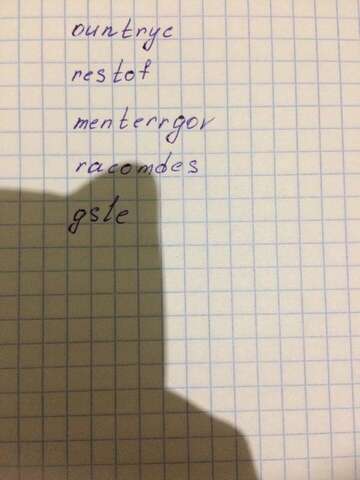 ountryc
restof
menterrgov
racomdes
gsle